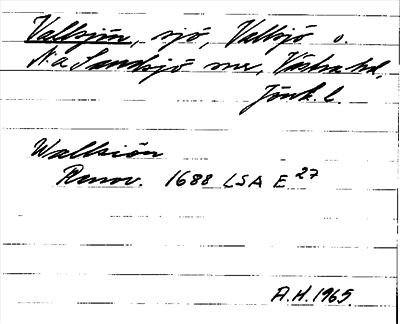 Vallsjön, sjö, Vallsjö o.
N:a Sandsjö snr, Västra hd,
Jönk. l.
Wallsiön
Renov. 1688 LSA E 27
A.H. 1965